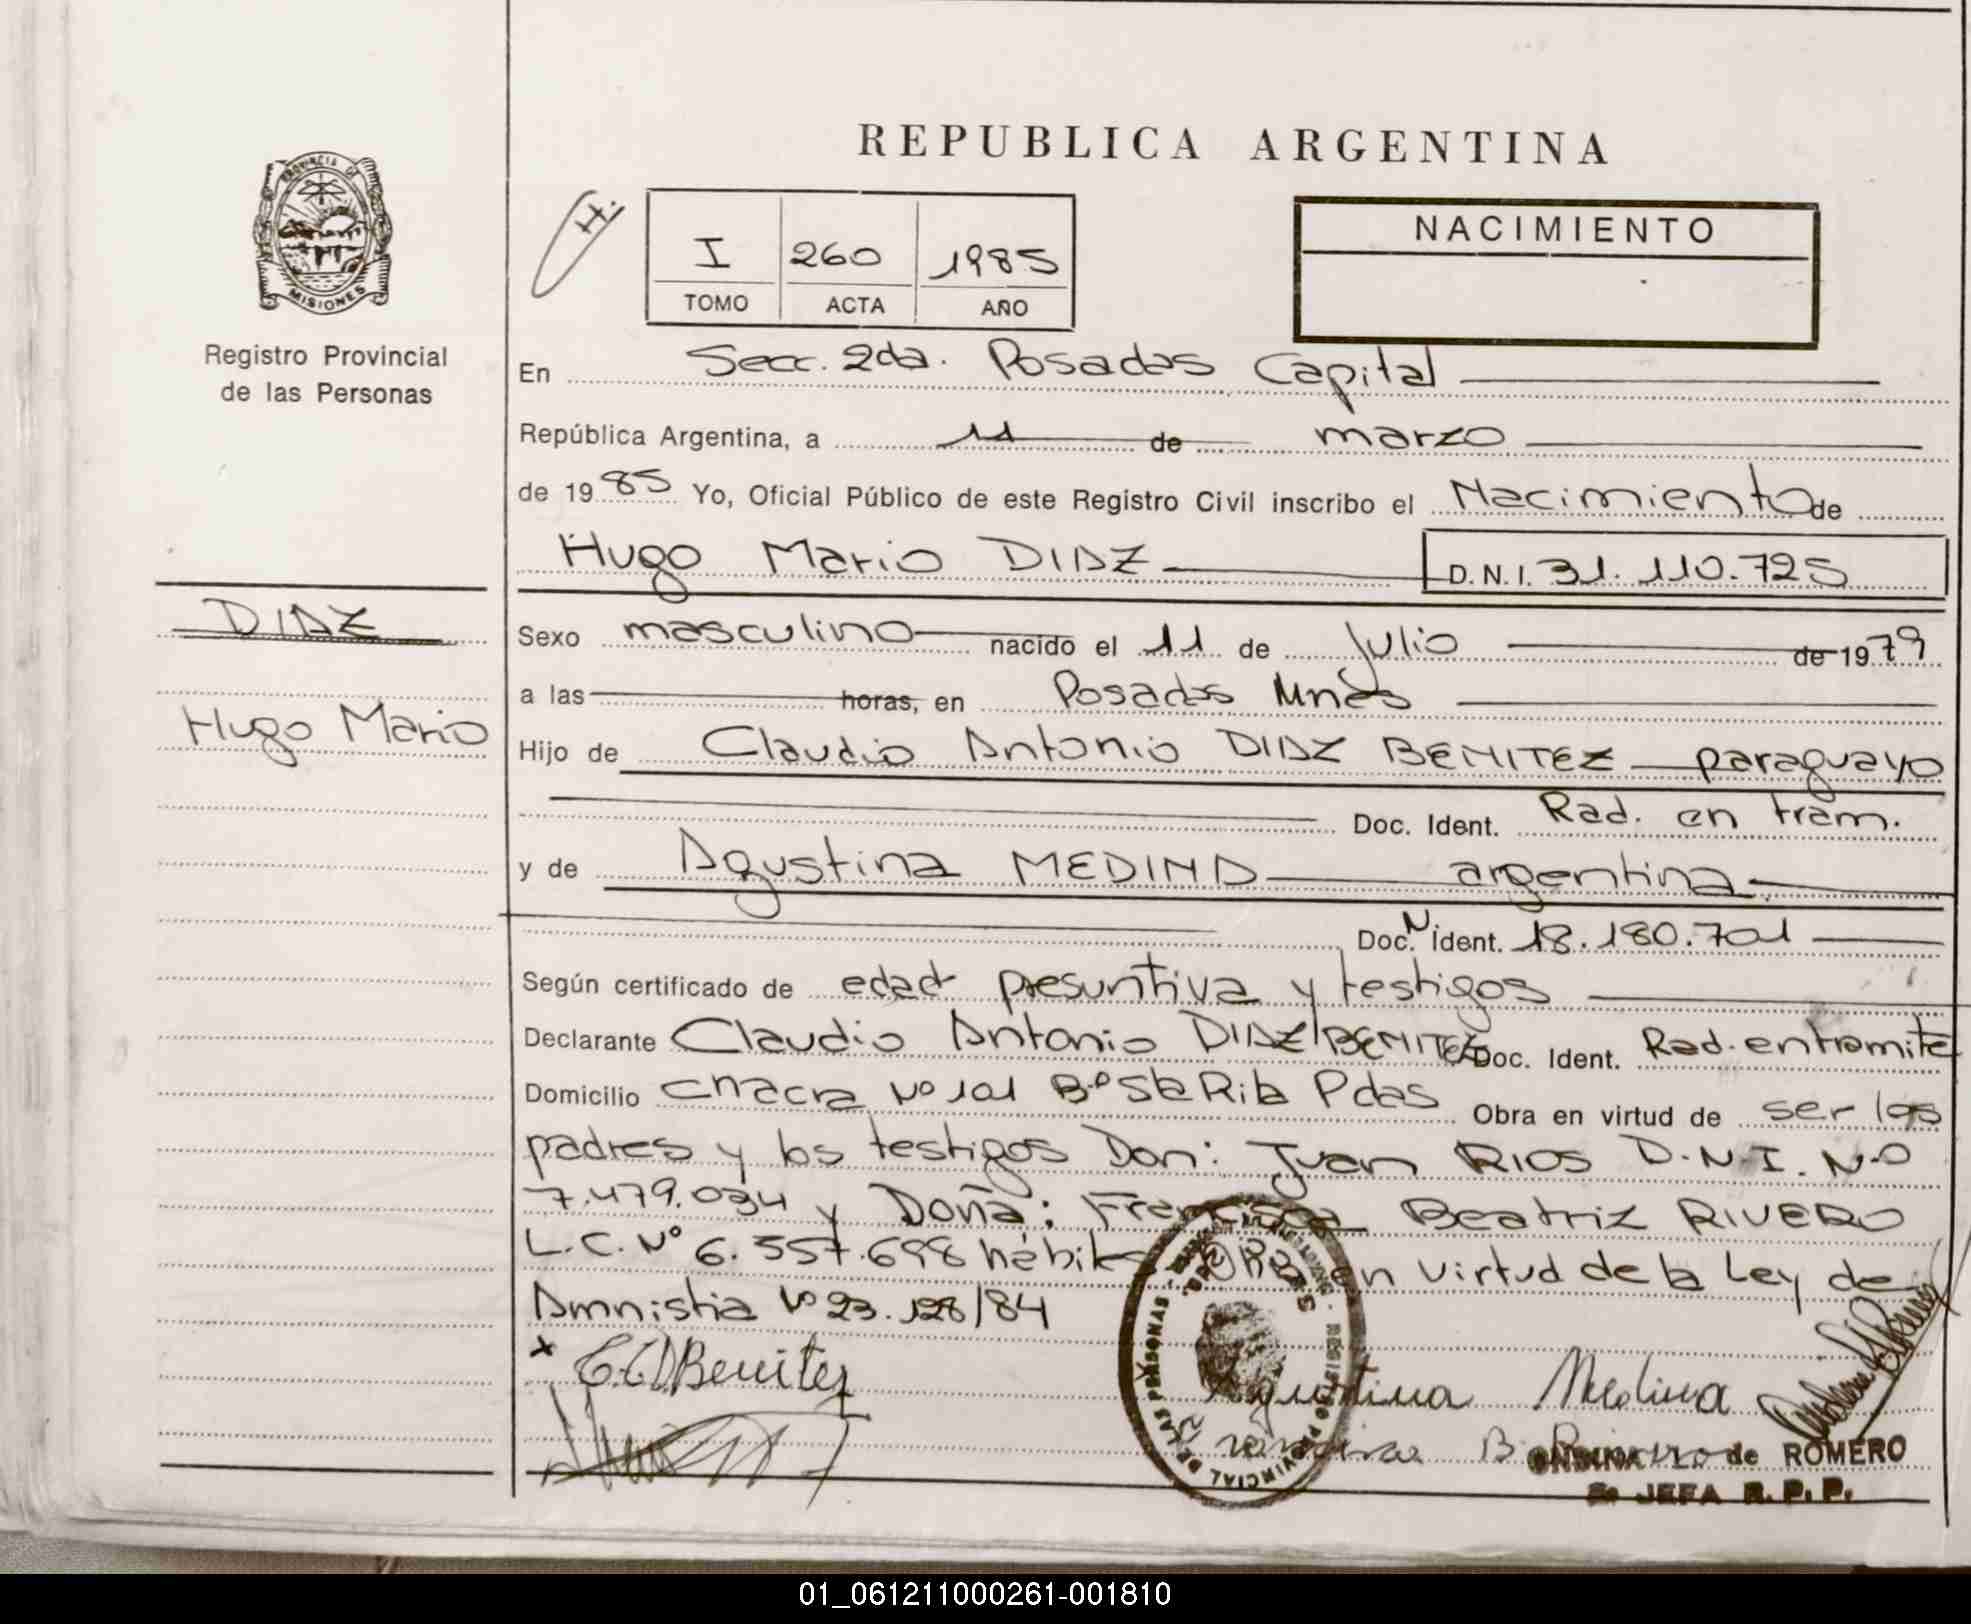 REPUBLICA ARGENTINA
PROVINCIA DE
MISIONES
Registro Provincial
de las Personas
H.
I 260 1985
TOMO ACTA AÑO
NACIMIENTO
En Secc. 2da. Posadas Capital
República Argentina, a 11 de marzo
de 1985 Yo, Oficial Público de este Registro Civil inscribo el Nacimiento de
Hugo Mario DIAZ D.N.I. 31.110.725
DIAZ
Hugo Mario
Sexo masculino nacido el 11 de Julio de 1979
a las horas, en Posadas Mnes
Hijo de Claudio Antonio DIAZ BENITEZ paraguayo
Doc. Ident. Rad. en tram.
y de Agustina MEDINA argentina
Doc. N. Ident. 18.180.701
Según certificado de edad presuntiva y testigos
Declarante Claudio Antonio DIAZ BENITEZ Doc. Ident. Rad. en tramite
Domicilio chacra Nº 101 Bº Sta Rita Pdas Obra en virtud de ser los
padres y los testigos Don: Juan RIOS D.N.I. N.º
7.479.034 y Doña: Francisca Beatriz RIVERO
L.C. Nº 6. hábiles en virtud de la Ley de
Amnistia Nº 23.128/84
x C.C.D.Benitez
Agustina Medina
Francisca B Rivero
REGISTRO PROVINCIAL DE LAS PERSONAS
de ROMERO
JEFA R.P.P.
01_061211000261-001810